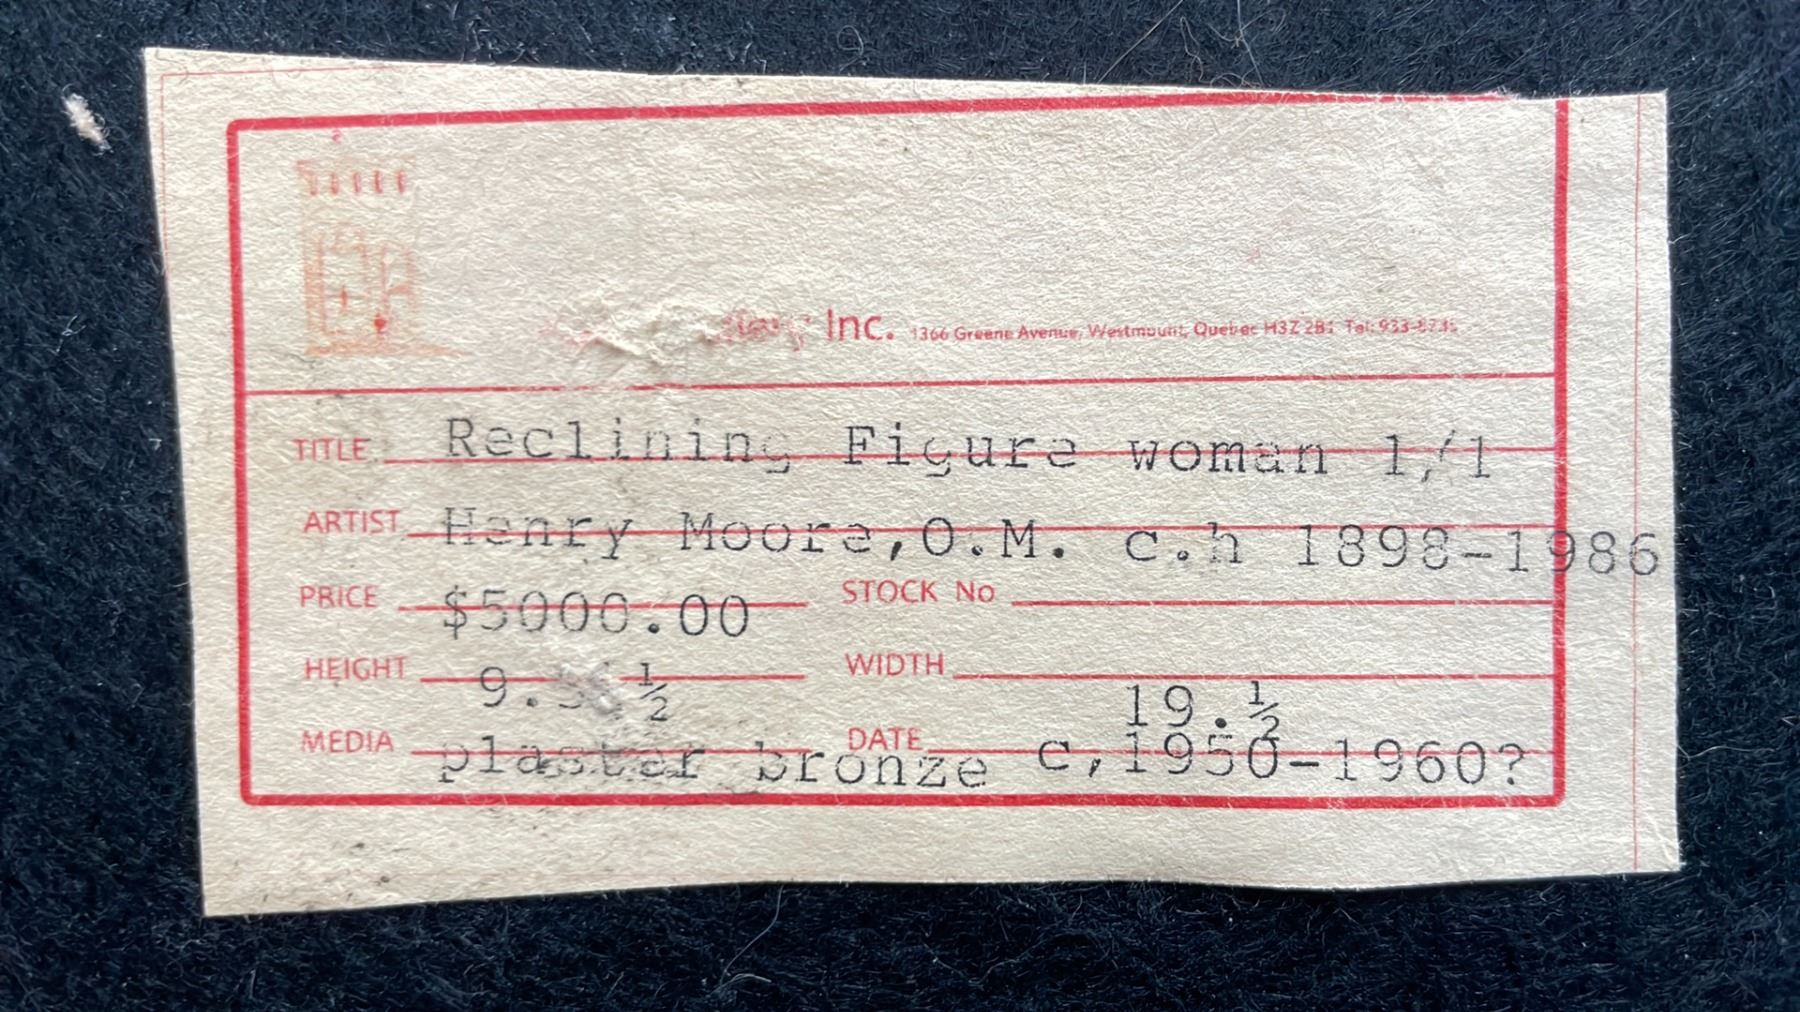 Inc. 1366 Greene Avenue, Westmount, Quebec H3Z 2B1 Tel: 933-
TITLE Reclining Figure woman 1/1
ARTIST Henry Moore,O.M. c.h 1898-1986
PRICE $5000.00 STOCK No
HEIGHT 9. ½ WIDTH 19.½
MEDIA plaster bronze DATE c,1950-1960?